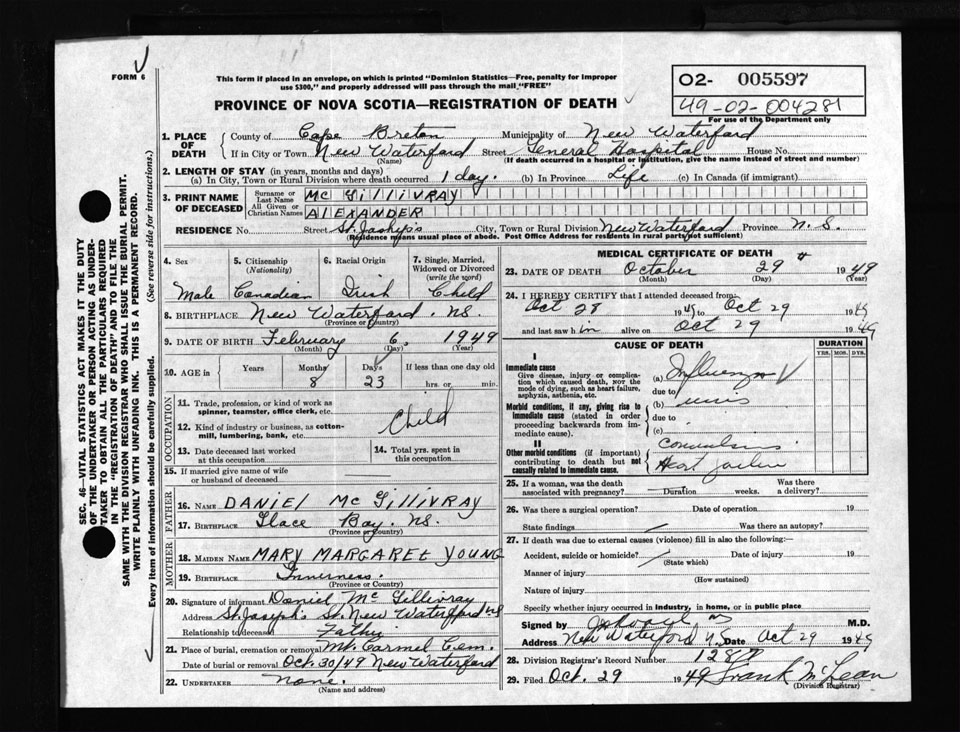 FORM 6
This form if placed in an envelope, on which is printed "Dominion Statistics—Free, penalty for improper
use $300," and properly addressed will pass through the mail "FREE"
PROVINCE OF NOVA SCOTIA—REGISTRATION OF DEATH
O2- 005597
49-02-004281
For use of the Department only
1. PLACE OF DEATH
County of Cape Breton Municipality of New Waterford
If in City or Town New Waterford Street General Hospital House No.
(Name) (If death occurred in a hospital or institution, give the name instead of street and number)
2. LENGTH OF STAY (in years, months and days)
(a) In City, Town or Rural Division where death occurred 1 day. (b) In Province Life (c) In Canada (if immigrant)
3. PRINT NAME OF DECEASED
Surname or Last Name Mc Gillivray
All Given or Christian Names ALEXANDER
RESIDENCE No. Street St. Josheph's City, Town or Rural Division New Waterford Province N. S.
(Residence means usual place of abode. Post Office Address for residents in rural parts not sufficient)
4. Sex Male
5. Citizenship (Nationality) Canadian
6. Racial Origin Irish
7. Single, Married, Widowed or Divorced (write the word) Child
8. BIRTHPLACE New Waterford. NS.
(Province or Country)
9. DATE OF BIRTH February 6, 1949
(Month) (Day) (Year)
10. AGE in Years Months 8 Days 23 If less than one day old hrs. or min.
OCCUPATION
11. Trade, profession, or kind of work as spinner, teamster, office clerk, etc.
12. Kind of industry or business, as cotton-mill, lumbering, bank, etc.
Child
13. Date deceased last worked at this occupation
14. Total yrs. spent in this occupation
15. If married give name of wife or husband of deceased
FATHER
16. Name DANIEL Mc Gillivray
17. Birthplace Glace Bay. NS.
MOTHER
18. MAIDEN NAME MARY MARGAREt YOUNG
19. Birthplace Inverness.
(Province or Country)
20. Signature of informant Daniel Mc Gillivray
Address St. Joseph's St. New Waterford NS
Relationship to deceased Father
21. Place of burial, cremation or removal Mt. Carmel Cem.
Date of burial or removal Oct. 30/49 New Waterford
22. UNDERTAKER none.
(Name and address)
MEDICAL CERTIFICATE OF DEATH
23. DATE OF DEATH October 29 1949
(Month) (Day) (Year)
24. I HEREBY CERTIFY that I attended deceased from
Oct 28 1949 to Oct 29 1949
and last saw him alive on Oct 29 1949
CAUSE OF DEATH DURATION
YRS. MOS. DYS.
I
Immediate cause
Give disease, injury or complication which caused death, NOT the mode of dying, such as heart failure, asphyxia, asthenia, etc.
(a) Influenza
due to
Morbid conditions, if any, giving rise to immediate cause (stated in order proceeding backwards from immediate cause).
(b)
due to
(c)
II
Other morbid conditions (if important) contributing to death but not causally related to immediate cause.
Convulsions
Heart failure
25. If a woman, was the death associated with pregnancy? Duration weeks. Was there a delivery?
26. Was there a surgical operation? Date of operation 19
State findings Was there an autopsy?
27. If death was due to external causes (violence) fill in also the following:—
Accident, suicide or homicide? Date of injury 19
(State which)
Manner of injury
(How sustained)
Nature of injury
Specify whether injury occurred in industry, in home, or in public place
Signed by M.D.
Address New Waterford N.S. Date Oct 29 1949
28. Division Registrar's Record Number 128
29. Filed Oct. 29 1949 Frank McLean
(Division Registrar)
SEC. 46—VITAL STATISTICS ACT MAKES IT THE DUTY
OF THE UNDERTAKER OR PERSON ACTING AS UNDER-
TAKER TO OBTAIN ALL THE PARTICULARS REQUIRED
IN THE "REGISTRATION OF DEATH" AND TO FILE THE
SAME WITH THE DIVISION REGISTRAR WHO SHALL ISSUE THE BURIAL PERMIT.
WRITE PLAINLY WITH UNFADING INK. THIS IS A PERMANENT RECORD.
Every item of information should be carefully supplied. (See reverse side for instructions.)